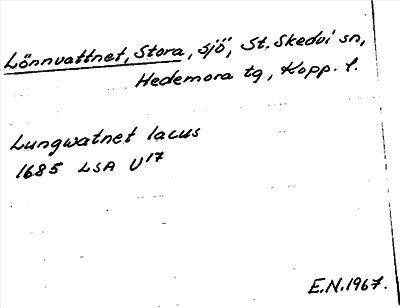 Lönnvattnet, Stora, sjö, St. Skedvi sn,
Hedemora tg, Kopp. l.
Lungwatnet lacus
1685 LSA U17
E.N. 1967.